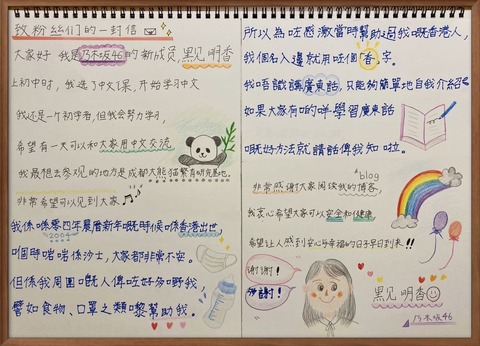 致粉丝们的一封信
大家好 我是乃木坂46的新成员,黑见 明香
上初中时,我选了中文课,开始学习中文
我还是一个初学者,但我会努力学习,
希望有一天可以和大家用中文交流
我最想去参观的地方是成都大熊猫繁育研究基地。
非常希望可以见到大家
我係喺零四年農曆新年嘅時候喺香港出世,
2004
嗰個時啱啱係沙士,大家都非常不安。
但係我周圍嘅人俾咗好多嘢我,
譬如食物、口罩之類嚟幫助我。
所以為咗感激當時幫助過我嘅香港人,
我個名入邊就用咗個「香」字。
我唔識講廣東話,只能夠簡單地自我介紹
如果大家有咩學習廣東話
嘅好方法就請話俾我知啦。
blog
非常感谢大家阅读我的博客,
我衷心希望大家可以安全和健康,
希望让人感到安心与幸福的日子早日到来!!
谢谢!
多謝!
黑见 明香
乃木坂46